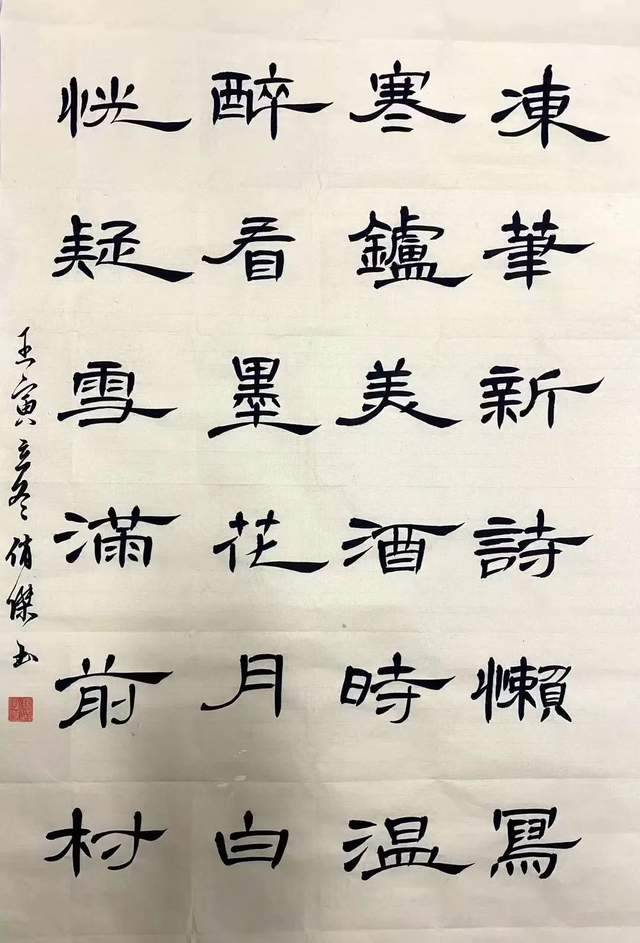 凍筆新詩懶寫
寒鑪美酒時温
醉看墨花月白
恍疑雪滿前村
壬寅立冬俏傑书